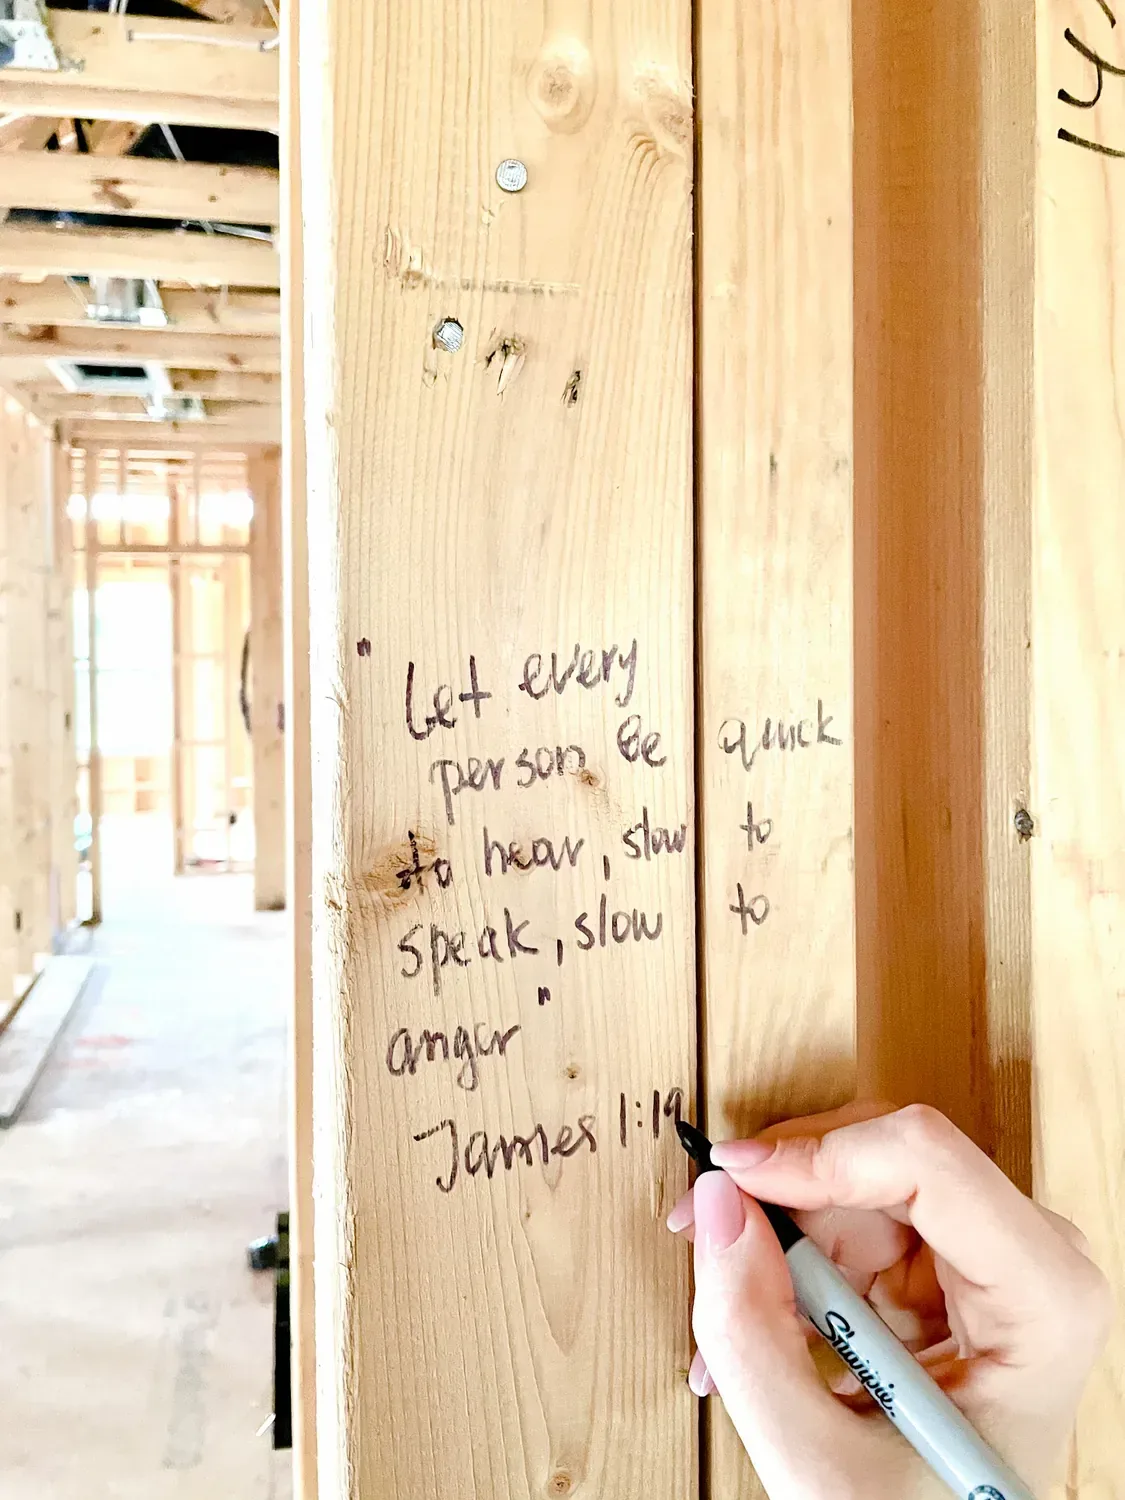 " Let every
person be quick
to hear, slow to
speak, slow to
anger "
James 1:19
Sharpie.
14